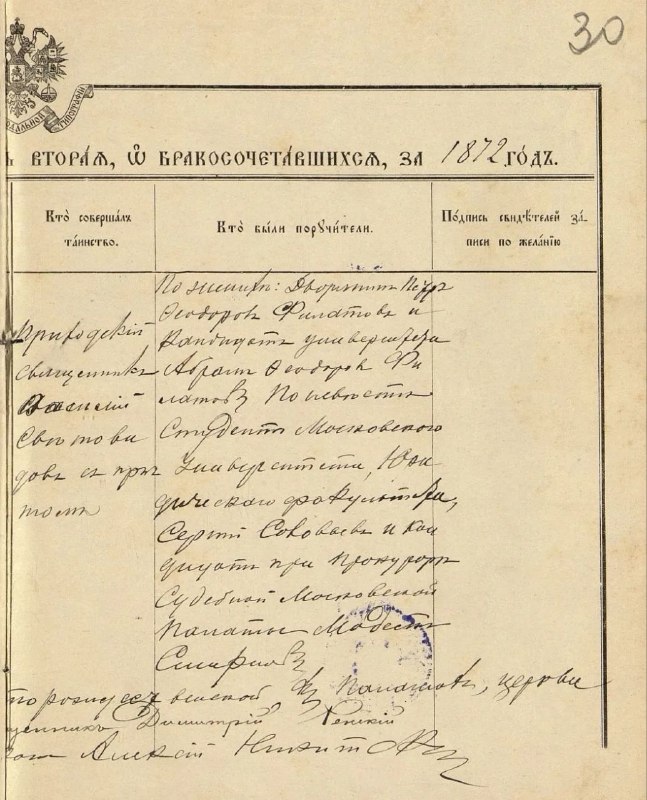 30
СѴНОДАЛЬНОЙ ТИПОГРАФІИ
ВТОРАЯ, Ѡ БРАКОСОЧЕТАВШИХСЯ, ЗА 1872 ГОДЪ.
Кто совершалъ таинство.
Кто были поручители.
Подпись свидѣтелей записи по желанію
Приходскій
священникъ
Василій
Свѣтови
довъ съ прич
томъ
По женихѣ: Дворянинъ Петръ
Ѳеодоровъ Филатовъ и
Кандидатъ университета
Абрамъ Ѳеодоровъ Фи
латовъ По невѣстѣ
Студентъ Московскаго
Университета, Юри
дическаго факультета,
Сергѣй Соловьевъ и кан
дидатъ при прокурорѣ
Судебной Московской
Палаты Модестъ
въ Палашахъ, церкви
Димитрій
Алексій Никит